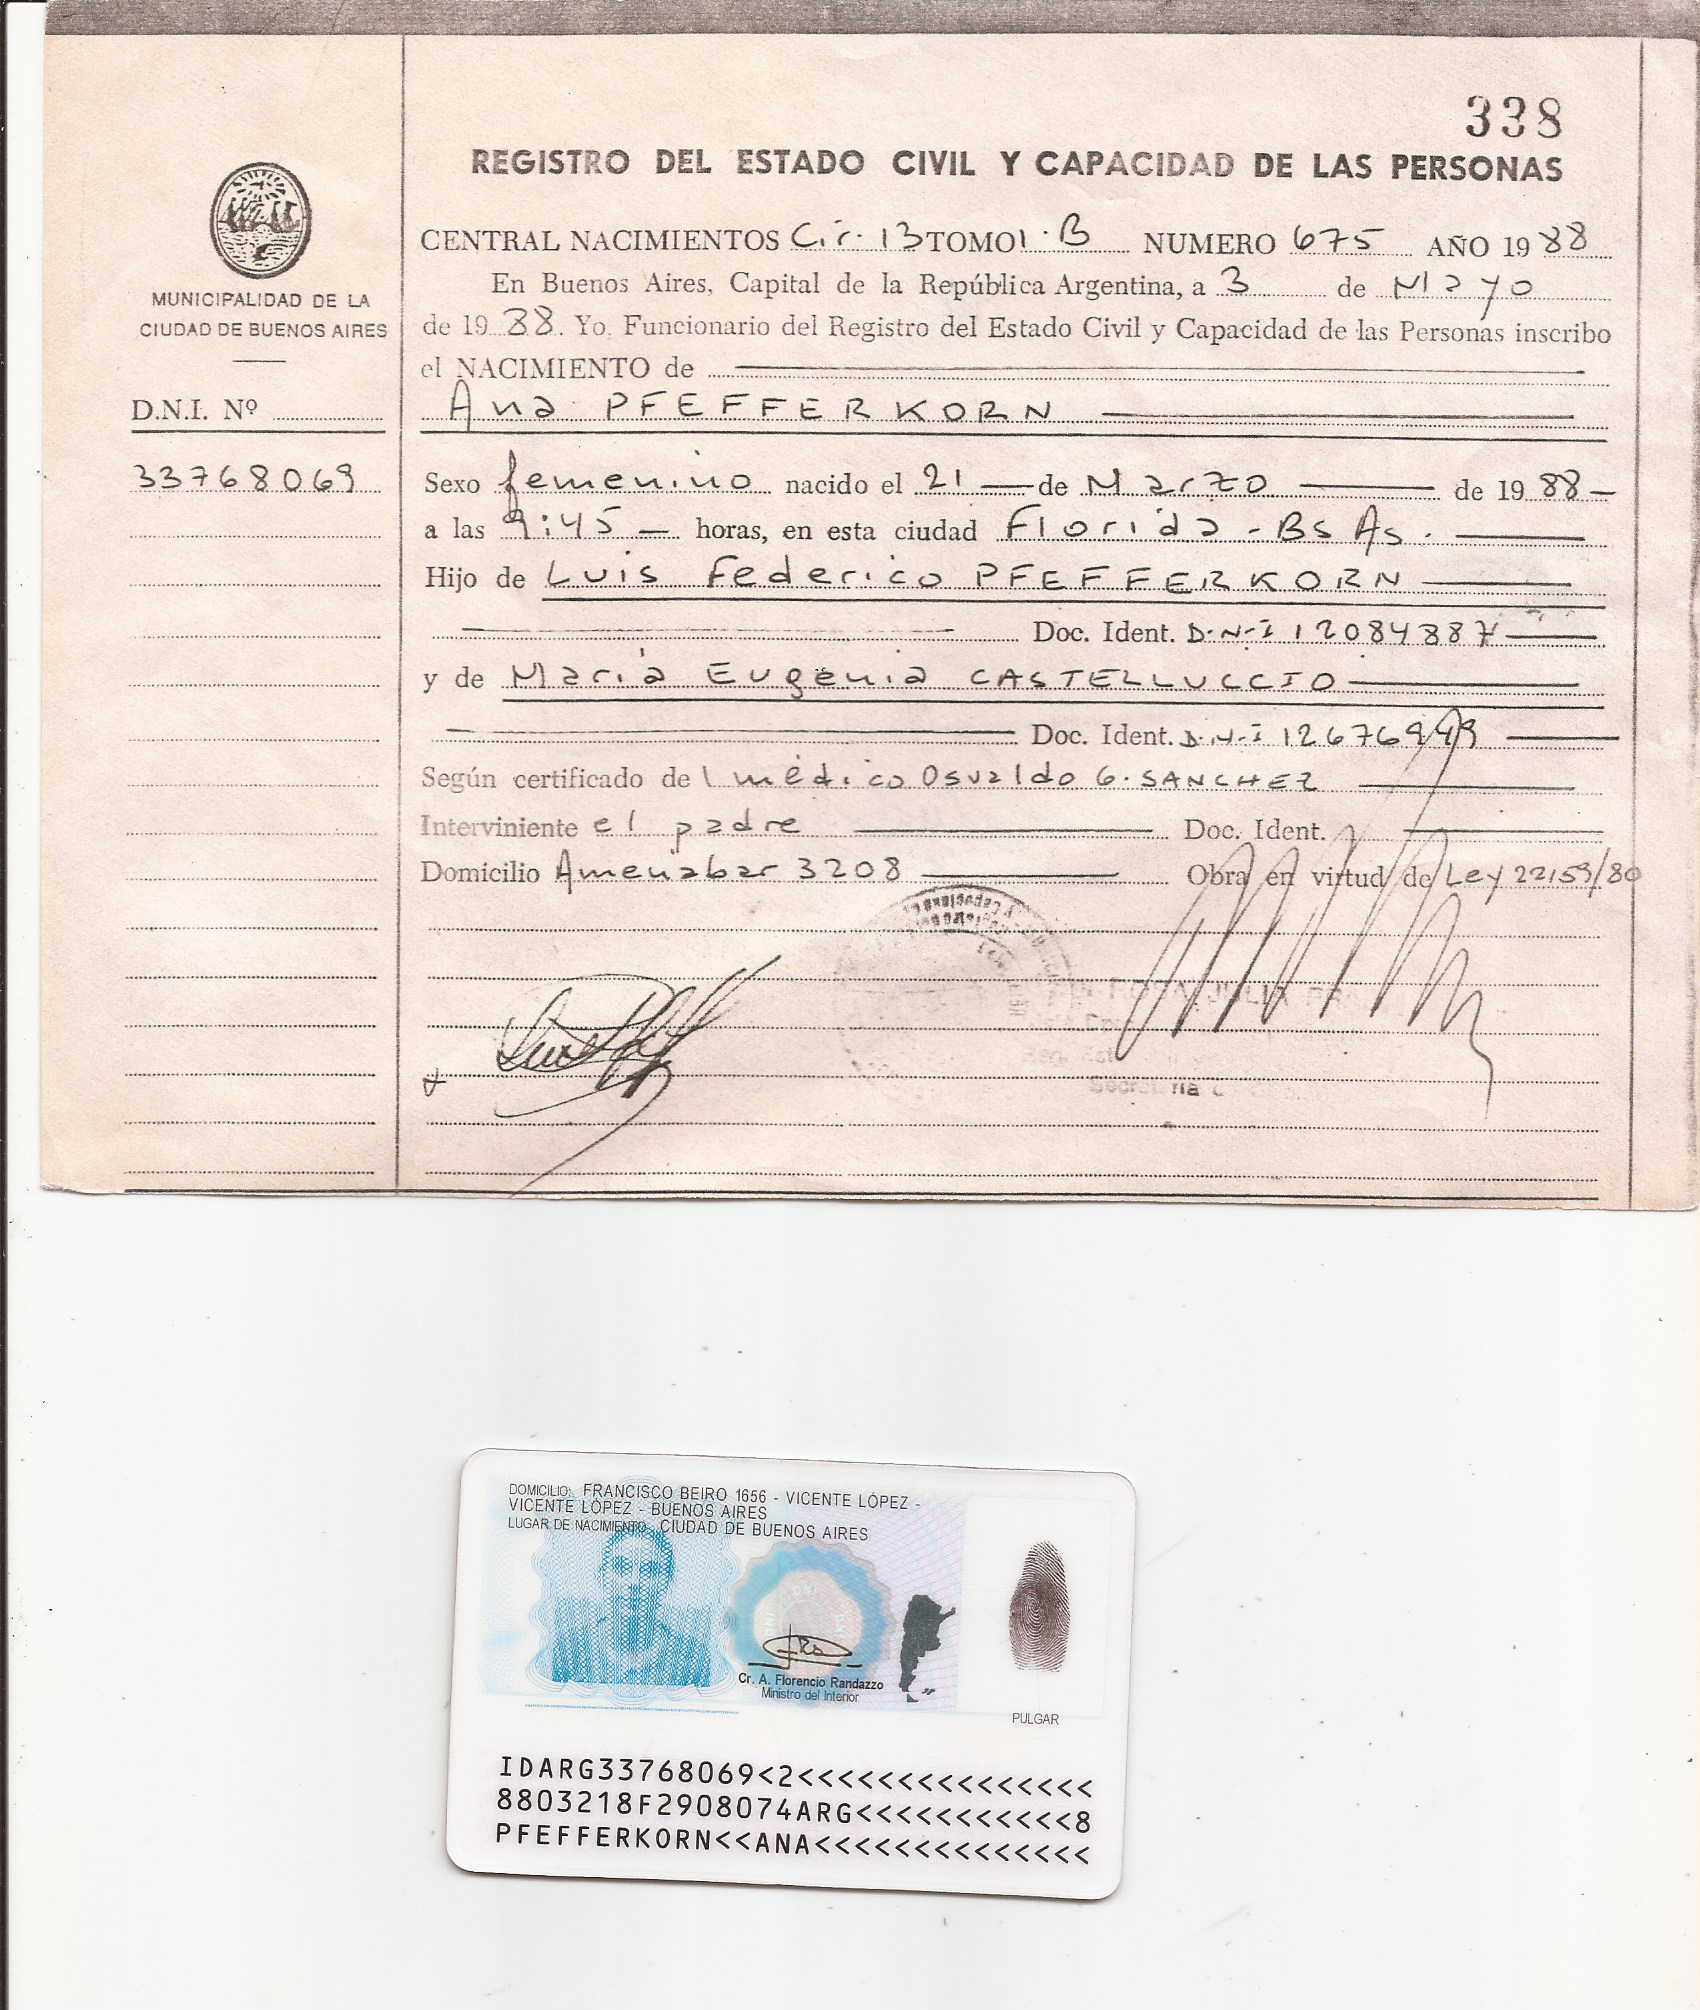 338
REGISTRO DEL ESTADO CIVIL Y CAPACIDAD DE LAS PERSONAS
MUNICIPALIDAD DE LA
CIUDAD DE BUENOS AIRES
D.N.I. Nº
33768069
CENTRAL NACIMIENTOS Cir. 13 TOMO 1.B NUMERO 675 AÑO 1988
En Buenos Aires, Capital de la República Argentina, a 3 de Mayo
de 1988. Yo, Funcionario del Registro del Estado Civil y Capacidad de las Personas inscribo
el NACIMIENTO de
Ana PFEFFERKORN
Sexo femenino nacido el 21 de Marzo de 1988
a las 9:45 horas, en esta ciudad Florida - Bs As.
Hijo de Luis Federico PFEFFERKORN
Doc. Ident. D.N.I 12084887
y de María Eugenia CASTELLUCCIO
Doc. Ident. D.N.I
Según certificado del médico Osvaldo G. SANCHEZ
Interviniente el padre Doc. Ident.
Domicilio Amenabar 3208 Obra en virtud de Ley 22159/80
DOMICILIO: FRANCISCO BEIRO 1656 - VICENTE LÓPEZ -
VICENTE LÓPEZ - BUENOS AIRES
LUGAR DE NACIMIENTO: CIUDAD DE BUENOS AIRES
Cr. A. Florencio Randazzo
Ministro del Interior
PULGAR
IDARG33768069<2<<<<<<<<<<<<<<<
8803218F2908074ARG<<<<<<<<<<<8
PFEFFERKORN<<ANA<<<<<<<<<<<<<<